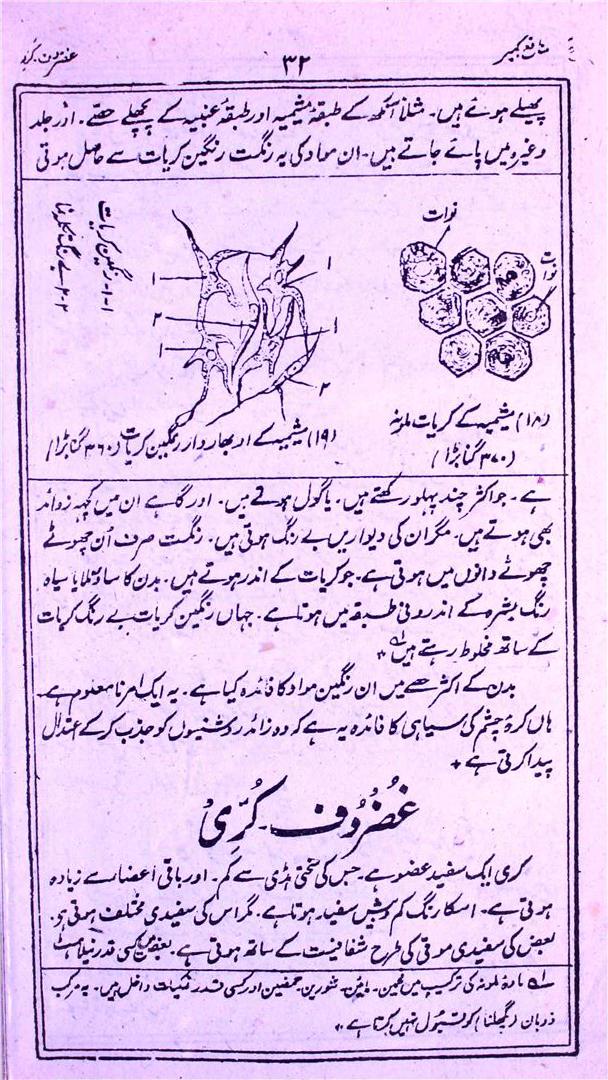 منافع کبیر
۳۲
غضروف۔ کُری
پھیلے ہوئے ہیں۔ مثلاً آنکھ کے طبقہ مشیمیہ اور طبقہ عنبیہ کے پچھلے حصے۔ اور جلد
وغیرہ میں پائے جاتے ہیں۔ ان مواد کی یہ رنگت رنگین کریات سے حاصل ہوتی
نوات
نوات
۱
۱
۲
۱
۱
۲
۱-۱- رنگین کریات
۲-۲- بے رنگ
(۱۸) مشیمیہ کے کریات ملونہ
(۳۷۰ گنا بڑا)
(۱۹) مشیمیہ کے ابھار دار رنگین کریات (۳۶۰ گنا بڑا)
ہے۔ جو اکثر چند پہلو رکھتے ہیں۔ یا گول ہوتے ہیں۔ اور گاہے ان میں کچھ زوائد
بھی ہوتے ہیں۔ مگر ان کی دیواریں بے رنگ ہوتی ہیں۔ رنگت صرف اُن چھوٹے
چھوٹے دانوں میں ہوتی ہے۔ جو کریات کے اندر ہوتے ہیں۔ بدن کا سانولا یا سیاہ
رنگ بشرہ کے اندرونی طبقہ میں ہوتا ہے۔ جہاں رنگین کریات بے رنگ کریات
کے ساتھ مخلوط رہتے ہیں ۱؎ ۔
بدن کے اکثر حصے میں ان رنگین مواد کا فائدہ کیا ہے۔ یہ ایک امر نامعلوم ہے۔
ہاں کرۂ چشم کی سیاہی کا فائدہ یہ ہے کہ وہ زائد روشنیوں کو جذب کر کے اعتدال
پیدا کرتی ہے +
غُضْرُوف۔ کُرّی
کری ایک سفید عضو ہے۔ جس کی سختی ہڈی سے کم۔ اور باقی اعضا سے زیادہ
ہوتی ہے۔ اسکا رنگ کم و بیش سفید ہوتا ہے۔ مگر اس کی سفیدی مختلف ہوتی ہے۔
بعض کی سفیدی موتی کی طرح شفافیت کے ساتھ ہوتی ہے۔ بعض میں کسی قدر نیلاہٹ
۱؎ مادۂ ملونہ کی ترکیب میں فحمین۔ مائین۔ شورین۔ حمضین اور کسی قدر داخل ہیں۔ یہ مرکب
ذوبان (پگھلنا) کو قبول نہیں کرتا ہے ۔